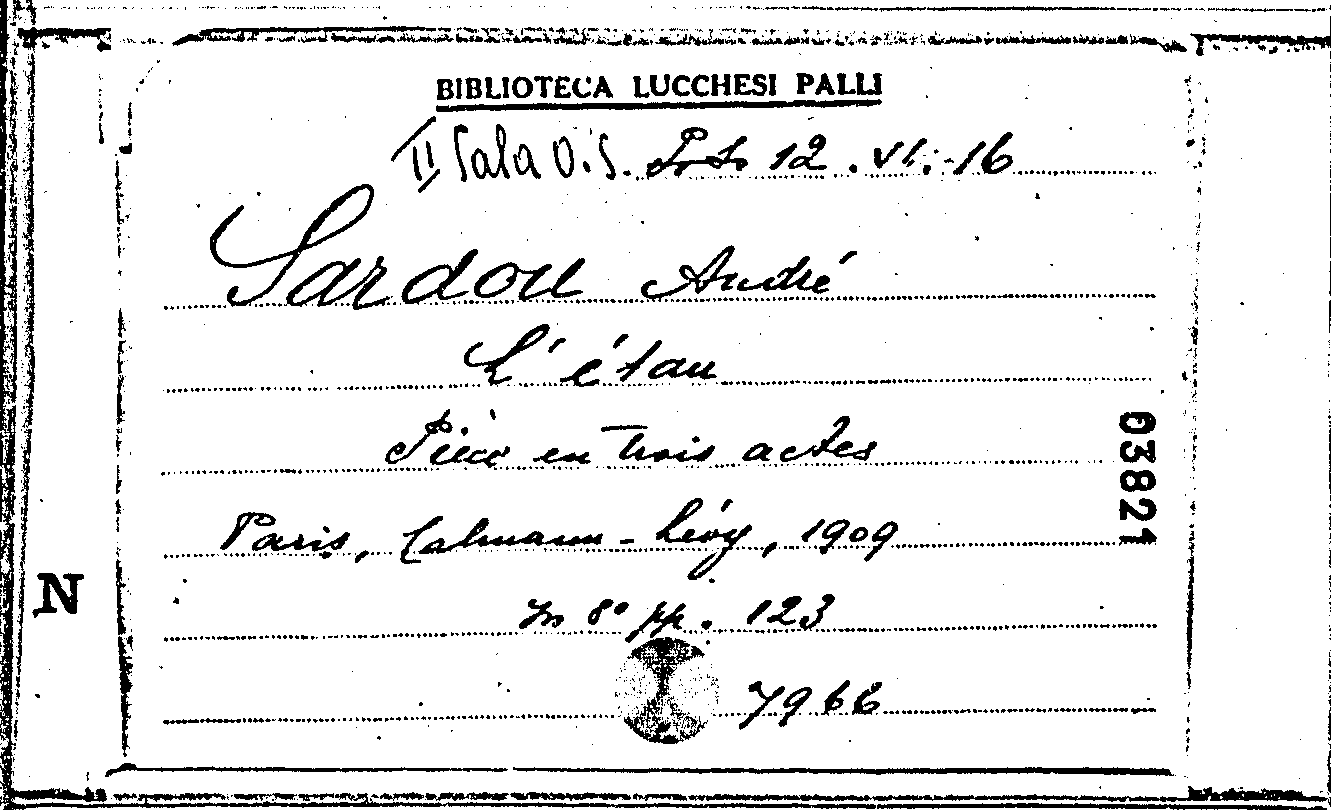 BIBLIOTECA LUCCHESI PALLI
II Sala O.S. 12. VI. 16
Sardou André
L'étau
Pièce en trois actes
03821
Paris, Calmann-Lévy, 1909
N
In 8° pp. 123
7966